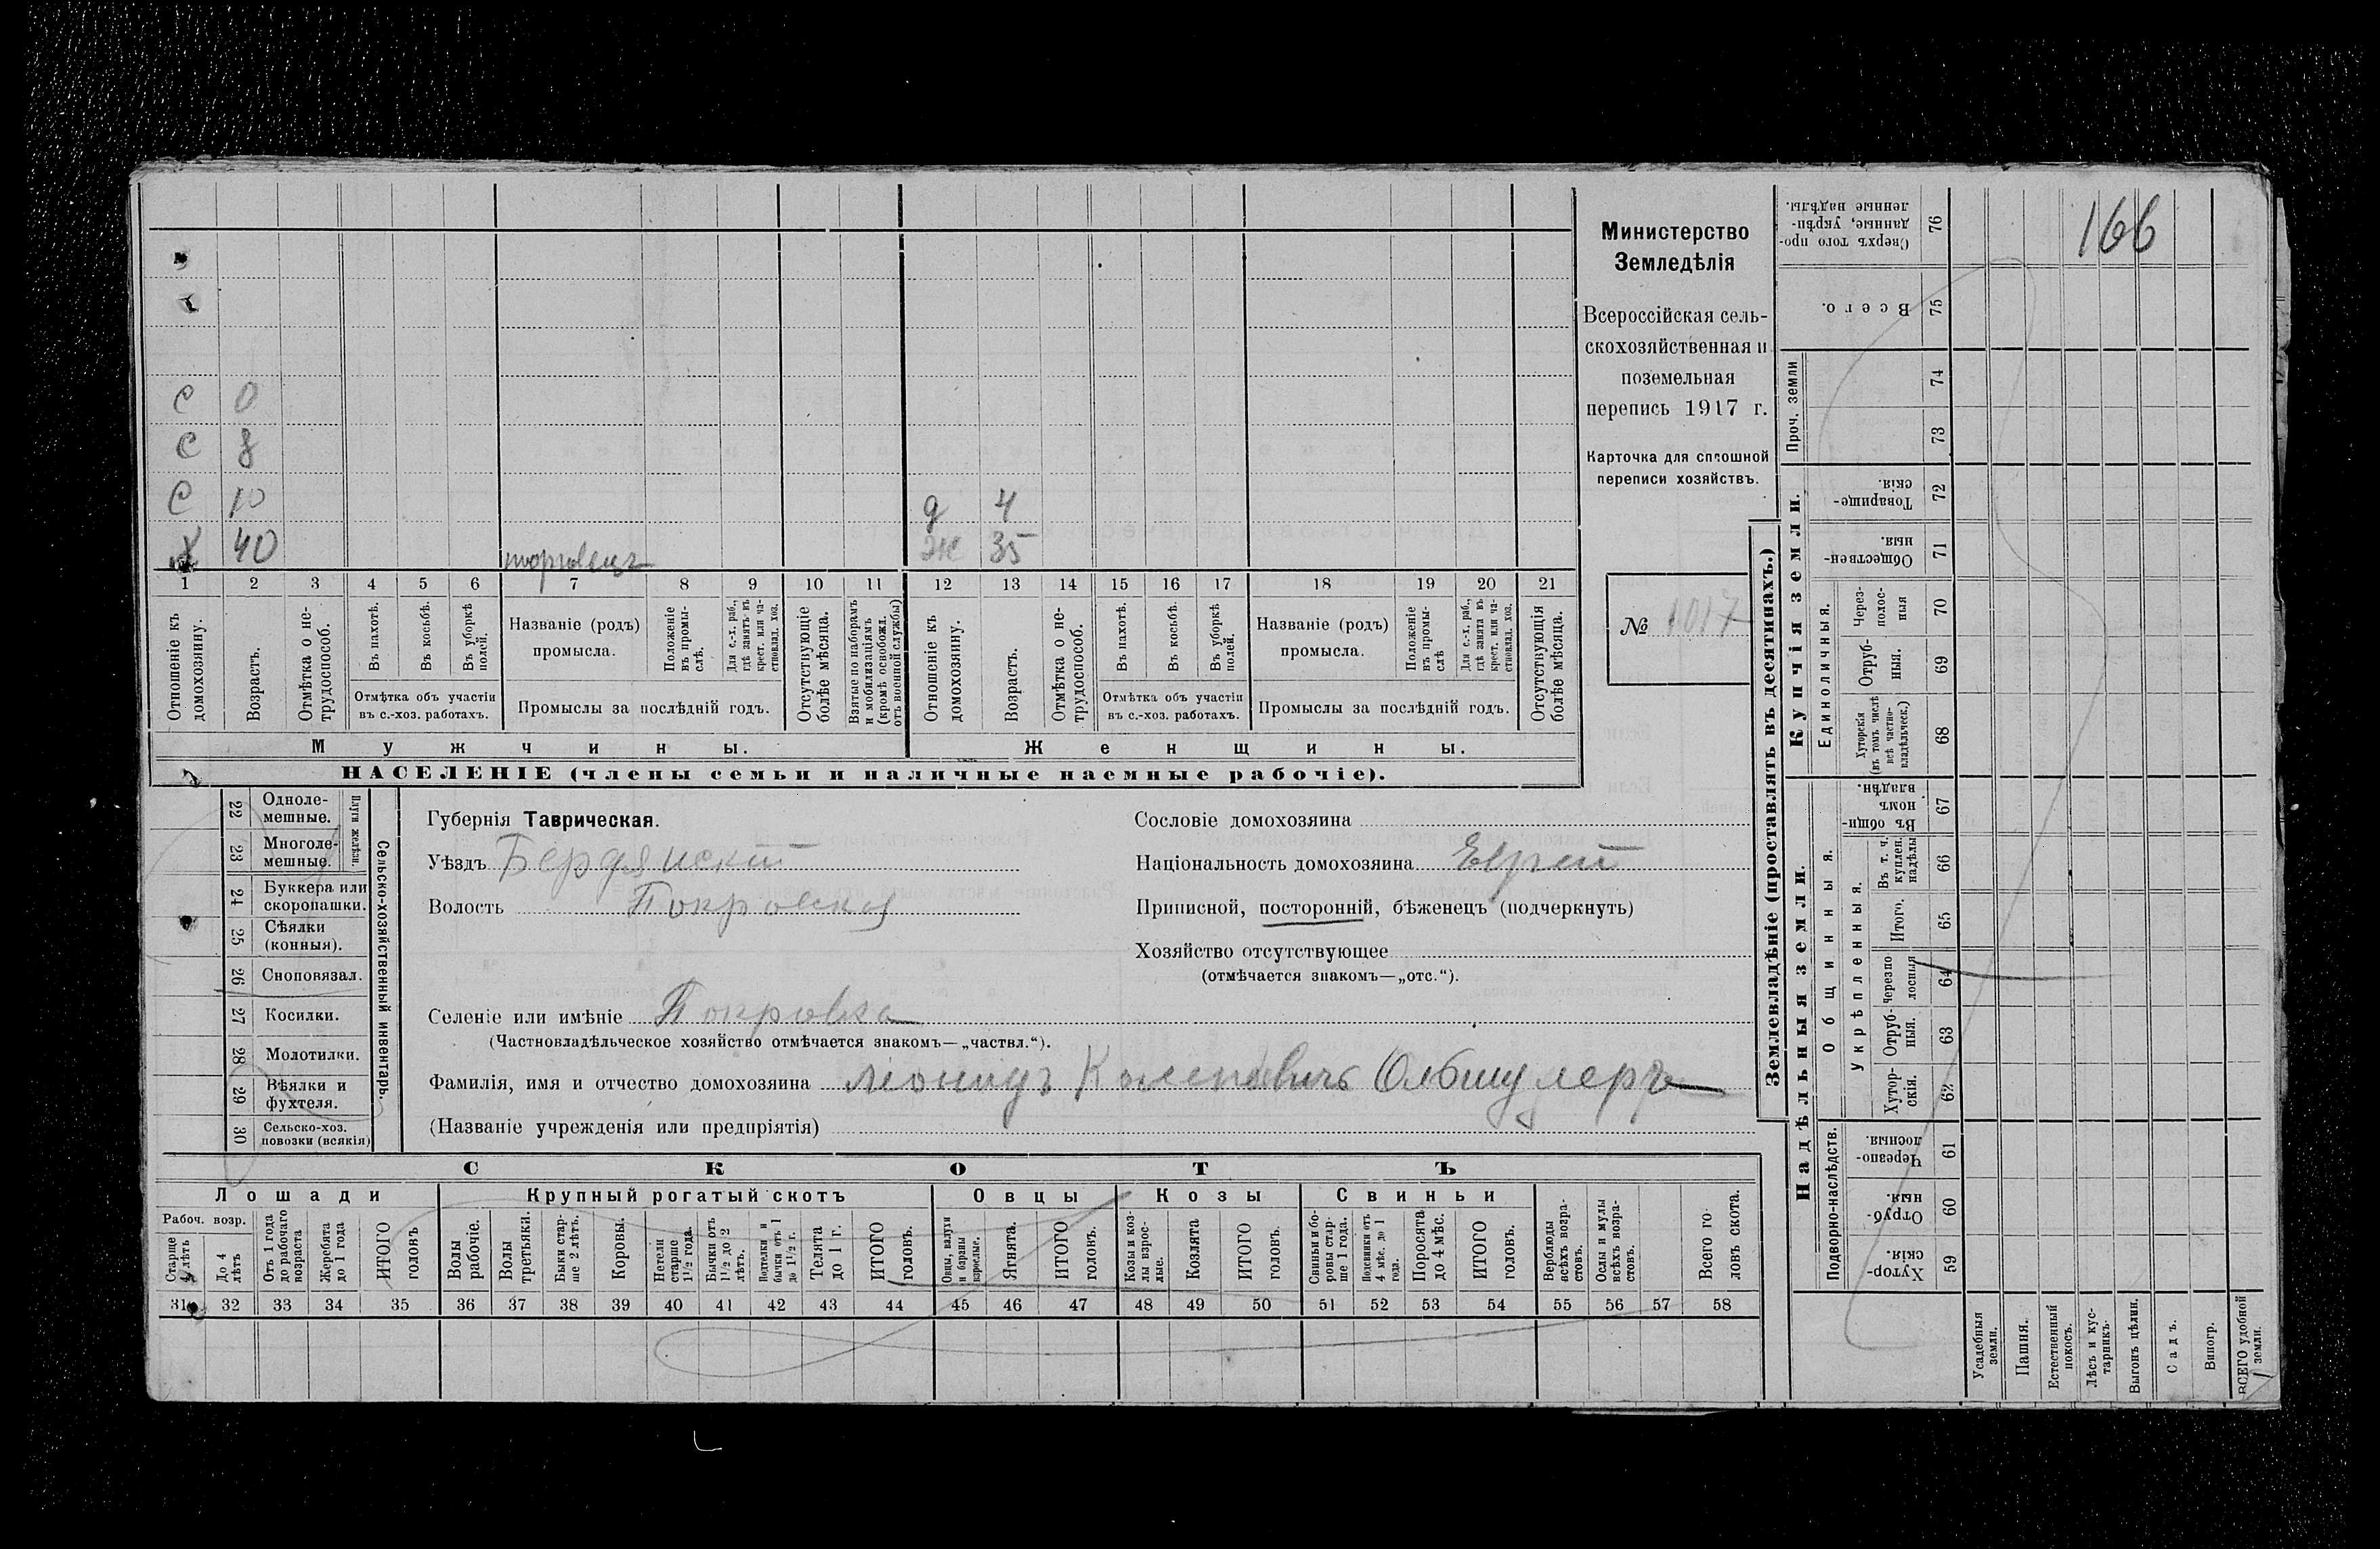 166
Министерство
Земледѣлія
Всероссійская сель-
скохозяйственная и
поземельная
перепись 1917 г.
Карточка для сплошной
переписи хозяйствъ.
№ 1017
С 0
С 8
С 10 д 4
Х 40 торговецъ Ж 35
1 2 3 4 5 6 7 8 9 10 11 12 13 14 15 16 17 18 19 20 21
Отношеніе къ домохозяину.
Возрастъ.
Отмѣтка о не-трудоспособ.
Въ пахотѣ.
Въ косьбѣ.
Въ уборкѣ полей.
Отмѣтка объ участіи
въ с.-хоз. работахъ.
Названіе (родъ)
промысла.
Положеніе въ промы-слѣ.
Для с.-х. раб., гдѣ занятъ въ крест. или ча-стновлад. хоз.
Промыслы за послѣдній годъ.
Отсутствующіе болѣе мѣсяца.
Взятые по наборамъ и мобилизаціямъ (кромѣ освобожд. отъ военной службы)
Отношеніе къ домохозяину.
Возрастъ.
Отмѣтка о не-трудоспособ.
Въ пахотѣ.
Въ косьбѣ.
Въ уборкѣ полей.
Отмѣтка объ участіи
въ с.-хоз. работахъ.
Названіе (родъ)
промысла.
Положеніе въ промы-слѣ
Для с.-х. раб., гдѣ занята въ крест. или ча-стновлад. хоз.
Промыслы за послѣдній годъ.
Отсутствующія болѣе мѣсяца.
Мужчины. Женщины.
НАСЕЛЕНІЕ (члены семьи и наличные наемные рабочіе).
22 Одноле-мешные.
23 Многоле-мешные.
Плуги желѣзн.
24 Буккера или скоропашки.
25 Сѣялки (конныя).
26 Сноповязал.
27 Косилки.
28 Молотилки.
29 Вѣялки и фухтеля.
30 Сельско-хоз. повозки (всякія)
Сельско-хозяйственный инвентарь.
Губернія Таврическая.
Уѣздъ Бердянскій
Волость Покровская
Сословіе домохозяина
Національность домохозяина Еврей
Приписной, посторонній, бѣженецъ (подчеркнуть)
Хозяйство отсутствующее
(отмѣчается знакомъ—„отс.“).
Селеніе или имѣніе Покровка
(Частновладѣльческое хозяйство отмѣчается знакомъ—„частвл.“).
Фамилія, имя и отчество домохозяина Леонидъ Олбшулеръ
(Названіе учрежденія или предпріятія)
СКОТЪ
Лошади Крупный рогатый скотъ Овцы Козы Свиньи
Рабоч. возр.
Старше 4 лѣтъ
До 4 лѣтъ
Отъ 1 года до рабочаго возраста
Жеребята до 1 года
ИТОГО головъ
Волы рабочіе.
Волы третьяки.
Быки стар-ше 2 лѣтъ.
Коровы.
Нетели старше 1 1/2 года.
Бычки отъ 1 1/2 до 2 лѣтъ.
Подтелки и бычки отъ 1 до 1 1/2 г.
Телята до 1 г.
ИТОГО головъ.
Овцы, валухи и бараны взрослые.
Ягнята.
ИТОГО головъ.
Козы и коз-лы взрос-лые.
Козлята
ИТОГО головъ.
Свиньи и бо-ровы стар-ше 1 года.
Подсвинки отъ 4 мѣс. до 1 года.
Поросята до 4 мѣс.
ИТОГО головъ.
Верблюды всѣхъ возра-стовъ.
Ослы и мулы всѣхъ возра-стовъ.
Всего го-ловъ скота.
31 32 33 34 35 36 37 38 39 40 41 42 43 44 45 46 47 48 49 50 51 52 53 54 55 56 57 58
Землевладѣніе (проставлять въ десятинахъ.)
Купчія земли.
Надѣльныя земли.
Сверхъ того про-данные, укрѣп-ленные надѣлы. 76
Всего. 75
Проч. земли 74
73
Товарище-скія. 72
Обществен-ныя. 71
Единоличныя.
Через-полос-ныя 70
Отруб-ныя. 69
Хуторскія (въ томъ числѣ всѣ частно-владѣльческ.) 68
Общинныя.
Въ общин-номъ владѣн. 67
Укрѣпленныя.
Въ т. ч. куплен. надѣлы 66
Итого. 65
Черезпо-лосныя 64
Отруб-ныя. 63
Хутор-скія. 62
Подворно-наслѣдств.
Черезпо-лосныя. 61
Отруб-ныя. 60
Хутор-скія. 59
Усадебныя земли.
Пашня.
Естественный покосъ.
Лѣсъ и кус-тарникъ.
Выгонъ цѣлин.
Садъ.
Виногр.
ВСЕГО удобной земли.